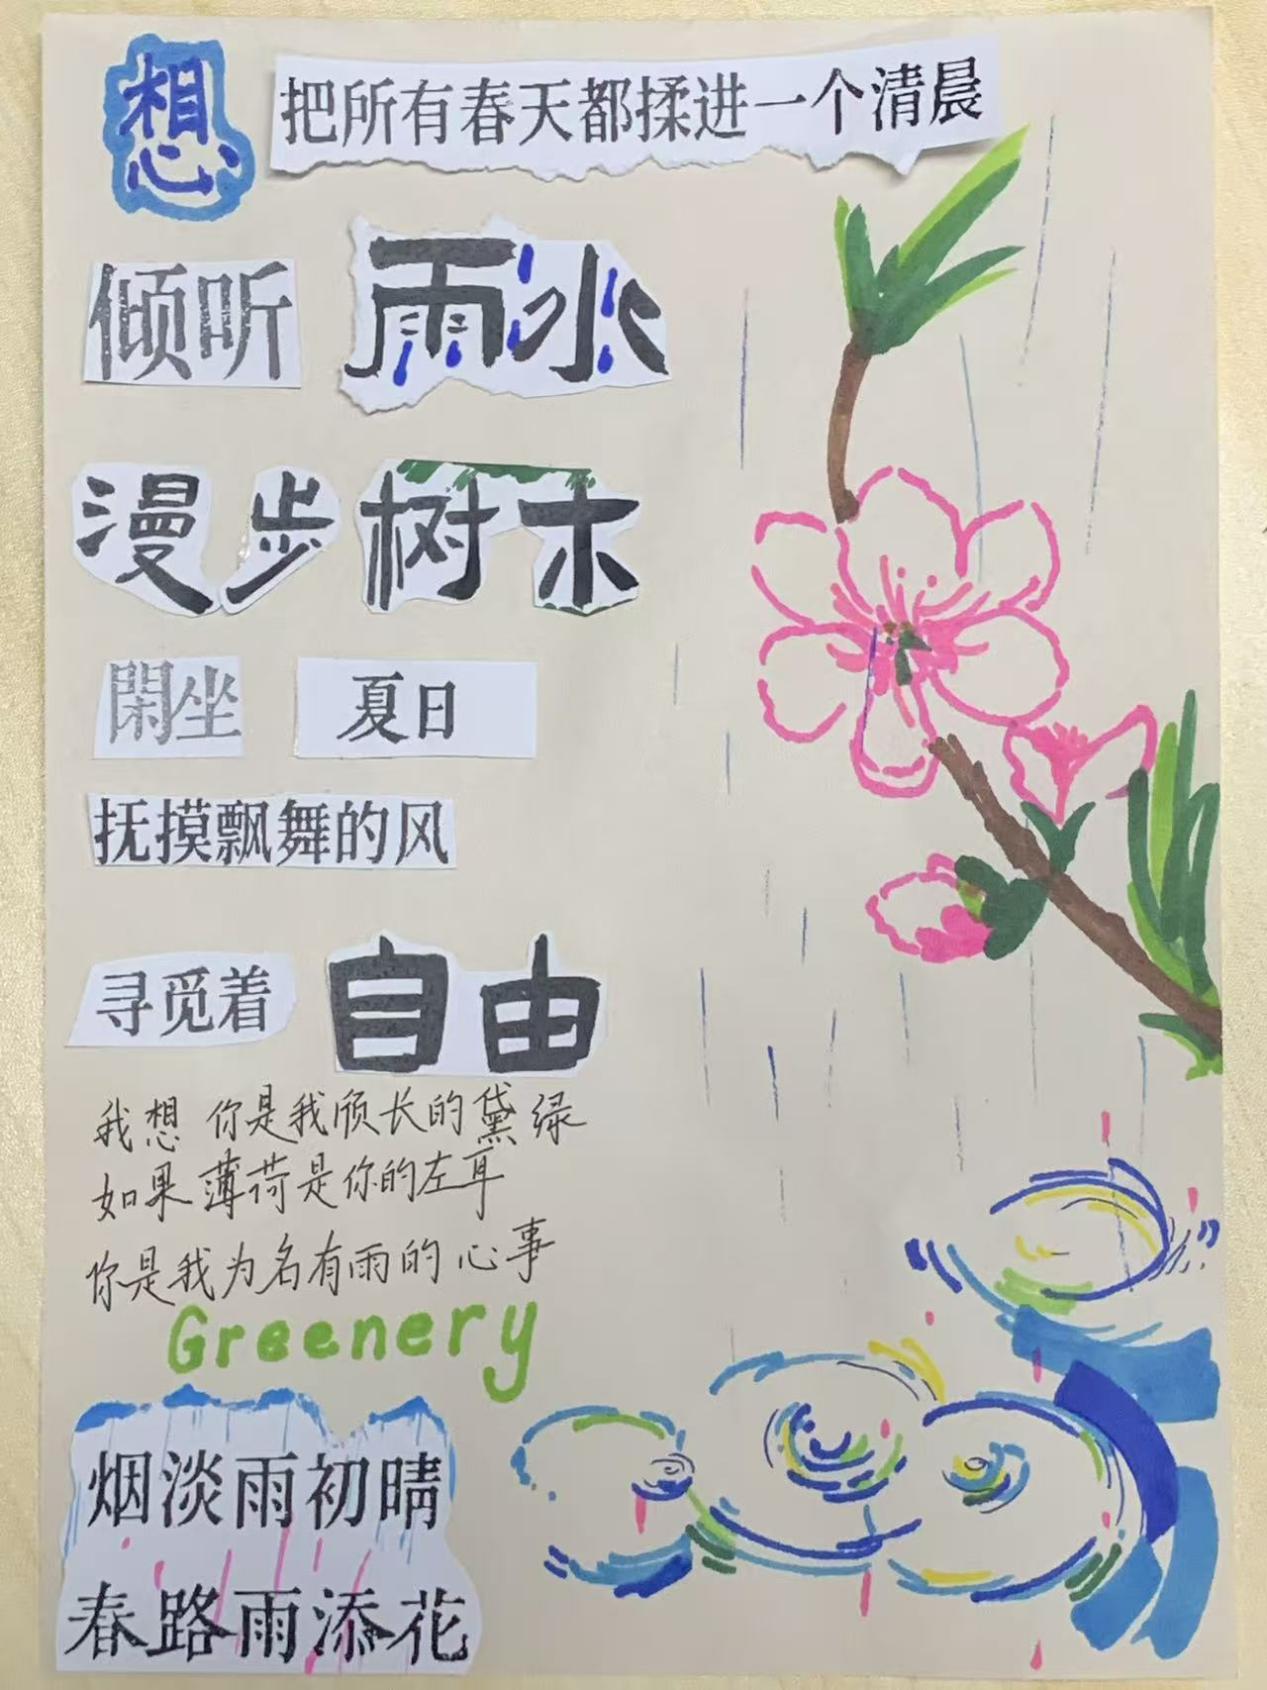 想 把所有春天都揉进一个清晨
倾听 雨水
漫步树木
閑坐 夏日
抚摸飘舞的风
寻觅着 自由
我想 你是我颀长的黛绿
如果薄荷是你的左耳
你是我为名有雨的心事
Greenery
烟淡雨初晴
春路雨添花